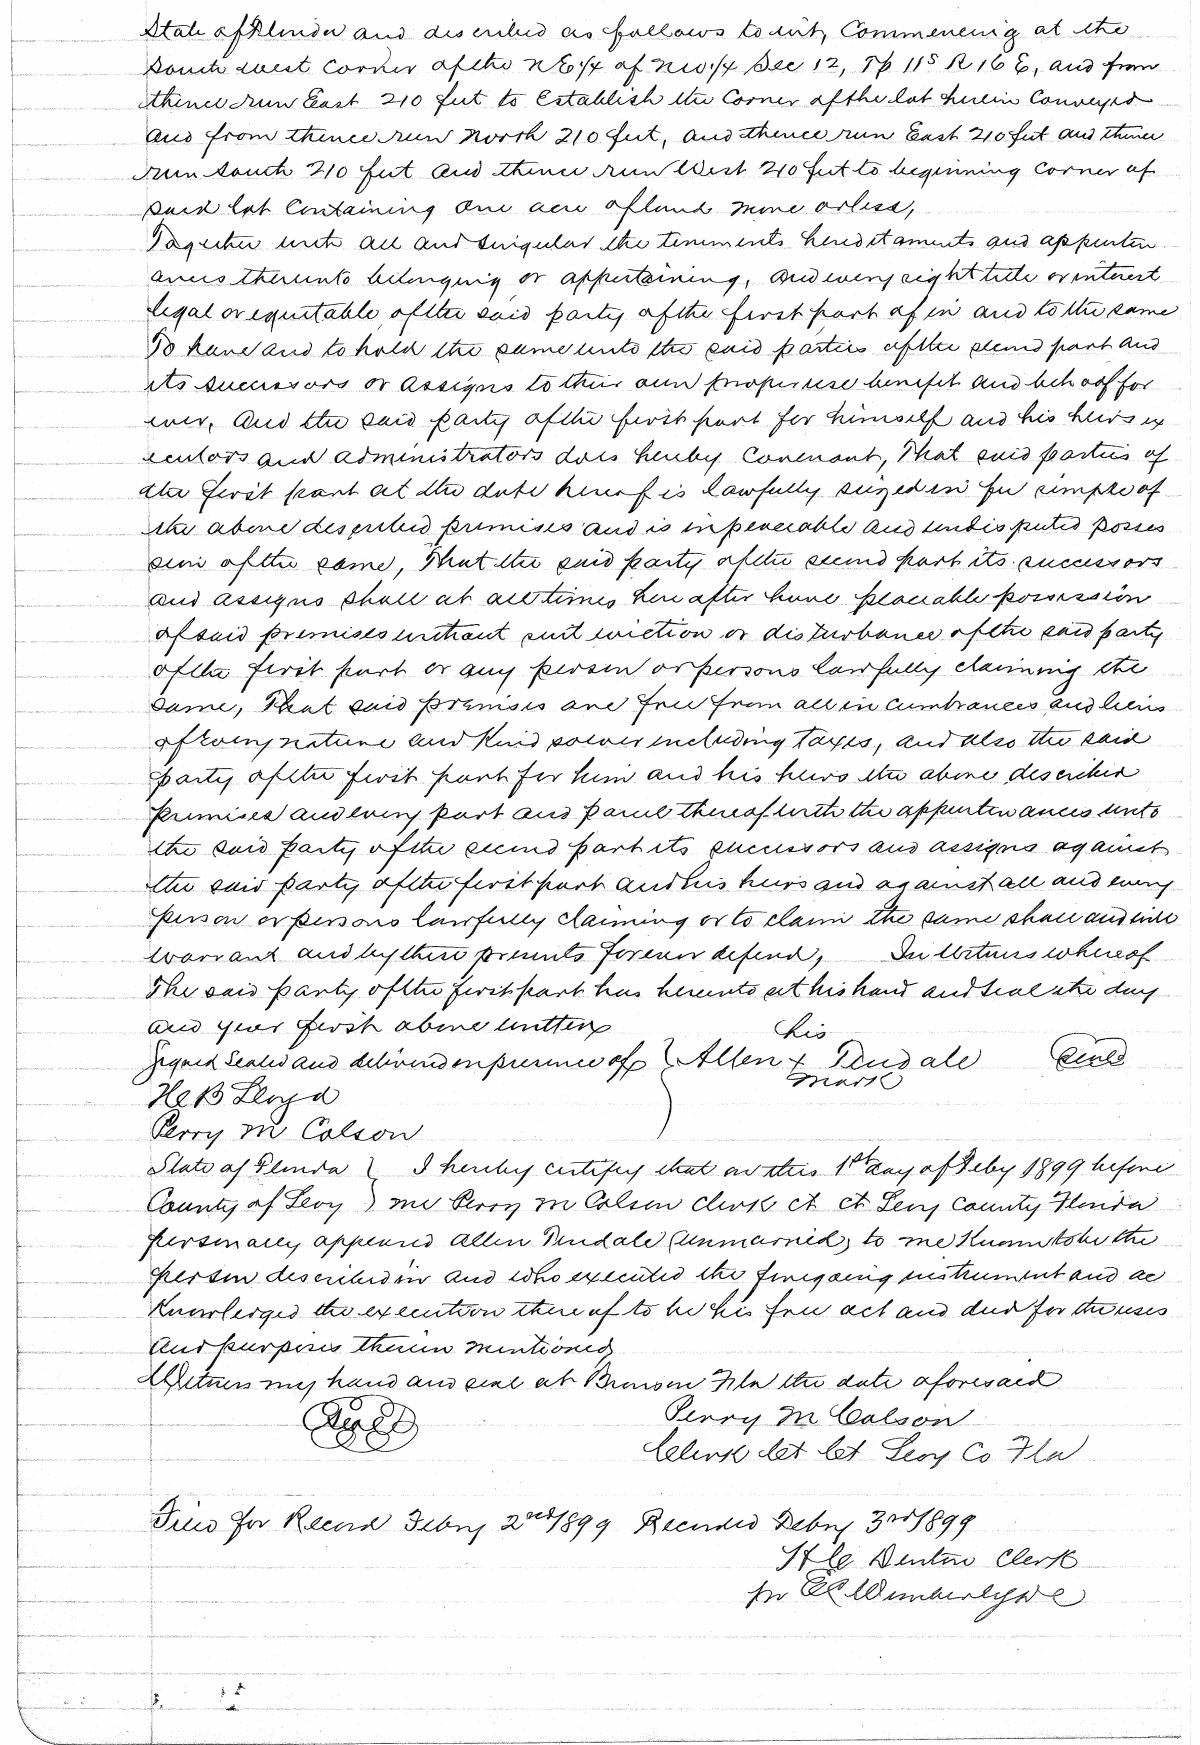 State of Florida and described as follows to wit, Commencing at the
South west Corner of the NE 1/4 of NW 1/4 Sec 12, Tp 11 S R 16 E, and from
thence run East 210 feet to Establish the Corner of the lot herein Conveyed
and from thence run North 210 feet, and thence run East 210 feet and thence
run South 210 feet and thence run West 210 feet to beginning Corner of
said lot Containing One acre of land more or less,
Together with all and singular the tenements hereditaments and appurten
ances thereunto belonging or appertaining, and every right title or interest
legal or equitable, of the said party of the first part of in and to the same
To have and to hold the same unto the said parties of the second part and
its successors or assigns to their own proper use benefit and behoof for
ever, And the said party of the first part for himself and his heirs ex
ecutors and administrators does hereby Covenant, That said parties of
the first part at the date hereof is lawfully seized in fee simple of
the above described premises and is in peaceable and undisputed posses
sion of the same, That the said party of the second part its successors
and assigns shall at all times here after have peaceable possession
of said premises without suit eviction or disturbance of the said party
of the first part or any person or persons lawfully claiming the
same, That said premises are free from all in cumbrances and liens
of every nature and Kind soever including Taxes, and also the said
party of the first part for him and his heirs the above described
premises and every part and parcel thereof with the appurtenances unto
the said party of the second part its successors and assigns against
the said party of the first part and his heirs and against all and every
person or persons lawfully claiming or to claim the same shall and will
warrant and by these presents forever defend, In Witness whereof
The said party of the first part has hereunto set his hand and seal the day
and year first above written his
Signed Sealed and delivered in presence of } Allen x Tindale (Seal)
mark
H B Lloyd
Perry M Colson
State of Florida } I hereby certify that on this 1st day of Feby 1899 before
County of Levy } me Perry M Colson Clerk Ct Ct Levy County Florida
personally appeared Allen Tindale (unmarried) to me Known to be the
person described in and who executed the foregoing instrument and ac
Knowledged the execution thereof to be his free act and deed for the uses
and purposes therein mentioned
Witness my hand and seal at Bronson Fla the date aforesaid
(Seal) Perry M Colson
Clerk Cct Cct Levy Co Fla
Filed for Record Febry 2nd 1899 Recorded Febry 3rd 1899
H C Denton Clerk
pr Wimberly D C